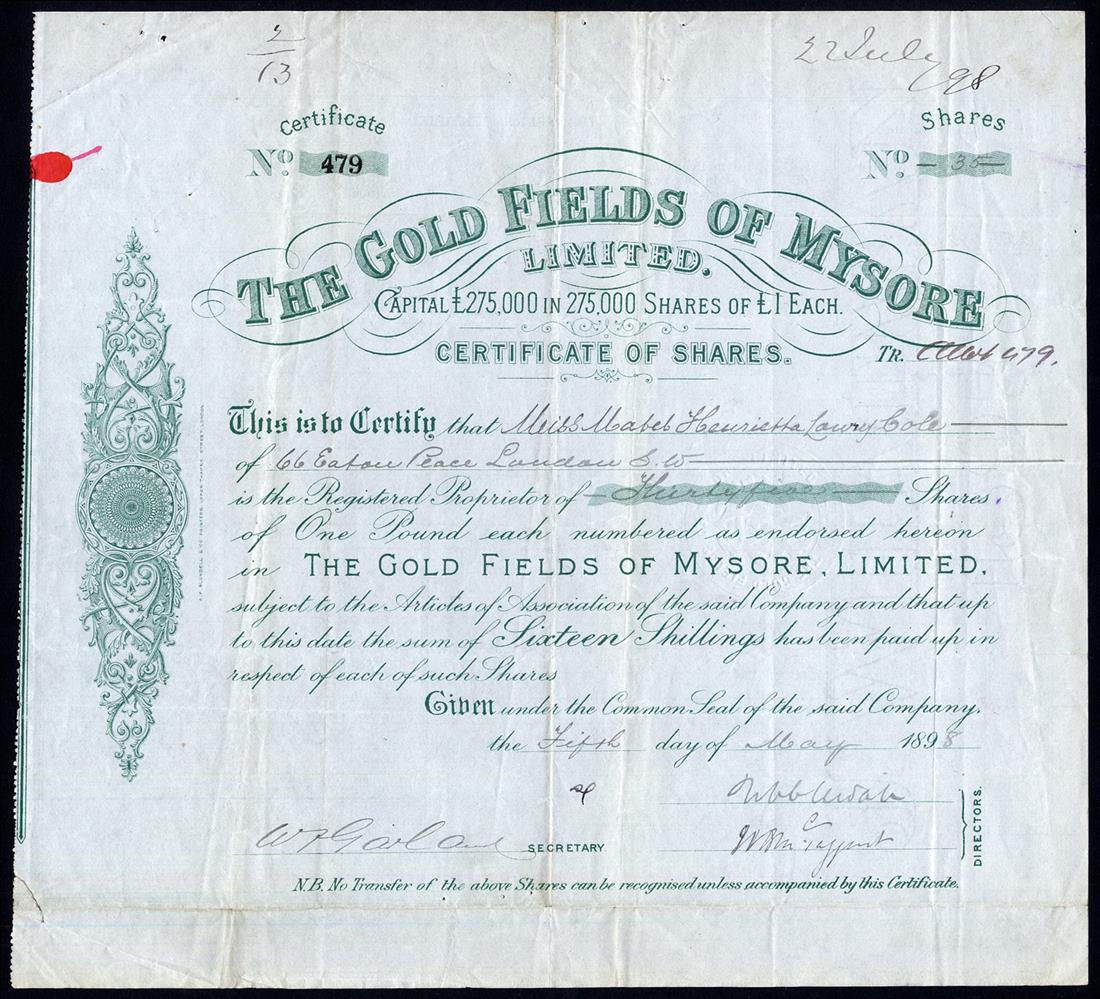 2/13
22 July /98
Certificate
Nº 479
Shares
Nº - 35 -
THE GOLD FIELDS OF MYSORE
LIMITED.
CAPITAL £275,000 IN 275,000 SHARES OF £1 EACH.
CERTIFICATE OF SHARES.
TR. 479.
This is to Certify that Miss Mabel Henrietta Lowry Cole
of 66 Eaton Place London S.W
is the Registered Proprietor of - Thirty five - Shares
of One Pound each numbered as endorsed hereon
in THE GOLD FIELDS OF MYSORE, LIMITED,
subject to the Articles of Association of the said Company and that up
to this date the sum of Sixteen Shillings has been paid up in
respect of each of such Shares
Given under the Common Seal of the said Company,
the Fifth day of May 1898
DIRECTORS.
W F Garland SECRETARY
N.B. No Transfer of the above Shares can be recognised unless accompanied by this Certificate.